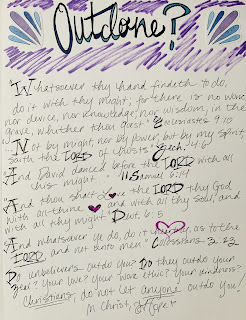 Outdone?
Whatsoever thy hand findeth to do,
do it with thy might; for there is no work,
nor device, nor knowledge, nor wisdom, in the
grave, whither thou goest. Ecclesiastes 9:10
Not by might, nor by power, but by my spirit,
saith the LORD of hosts. Zech. 4:6
And David danced before the LORD with all
his might. II Samuel 6:14
And thou shalt the LORD thy God
with all thine and with all thy soul, and
with all thy might. Deut. 6:5
And whatsoever ye do, do it heartily, as to the
LORD and not unto men. Colossians 3:23
Do unbelievers outdo you? Do they outdo your
? Your love? Your work ethic? Your kindness?
Christians, do not let anyone outdo you!
In Christ,